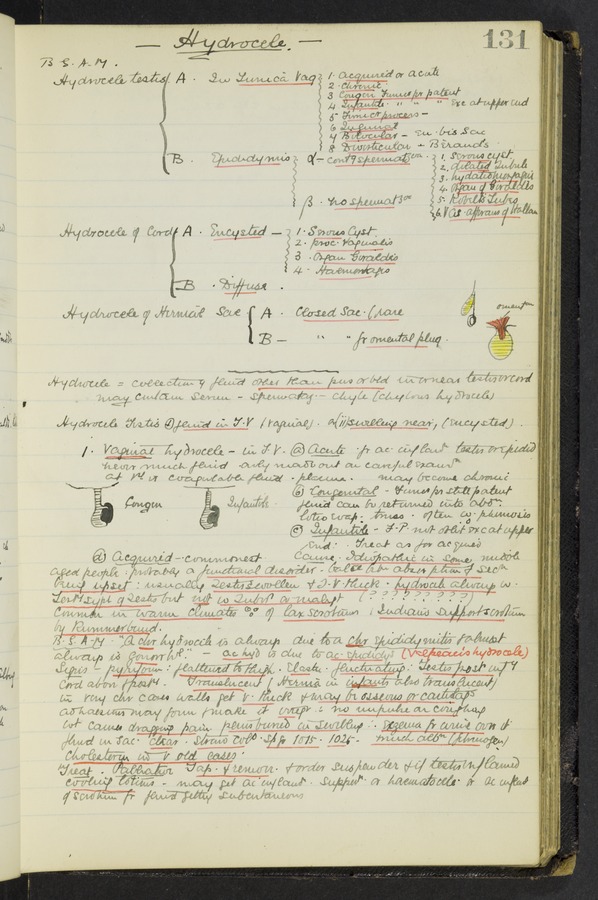 131
— Hydrocele. —
B. S. A. M.
Hydrocele testis A. In Tunica Vag 1. acquired or acute
2. chronic
3 Congen Funic pr patent
4 Infantile " " " Exc at upper end
5 Funic process —
6 Inguinal
7 Bilocular — En bis Sac
8 Diverticular — Bérauds
B. Epididymis α — contg spermatzoa 1. Serous cyst
2. dilated tubule
3. hydatid morgagni
4. Organ of Giraldés
5. Kobelts tubes
6. Vas aberrans of Haller
β. no spermatzoa
Hydrocele of Cord A. Encysted — 1. Serous Cyst.
2. proc. vaginalis
3. Organ Giraldés
4. Haemorrhagic
B. Diffuse.
Hydrocele of Hernial Sac A. Closed Sac. (rare
B — " " fr omental plug.
omentum
Hydrocele = collection of fluid other than pus or bld in or near testis or cord
may contain serum — spermatoz — chyle (chylous hydrocele)
Hydrocele Testis (i) fluid in T.V (vaginal). or (ii) swelling near, (encysted).
1. Vaginal hydrocele — in T.V. (a) Acute fr ac inflam testis or epidid
never much fluid only made out on careful exam
at 1st is coagulable fluid. plasma. may become chronic
Congen Infantile
(b) Congenital — Funic pr still patent
fluid can be returned into abdo.
lotio evap: truss: often c phimosis
(c) Infantile — F.P. not oblit exc at upper
end. Treat as for acquired
(d) Acquired — commonest
Cause. Idiopathic in some, middle
aged people, probably a functional disorder — balance betw absorption & secn
being upset: usually testis swollen & T.V thick — hydrocele always in
Tert syph of testis but not in Tubr or malig (? ? ? ? ? ? ? ? ?)
Common in warm climates of lax scrotum: Indians support scrotum
by Kummerbund.
B.S.A.M. "A chr hydrocele is always due to a chr epididymitis & almost
always is gonorrhl" — ac hyd is due to ac epididy
Signs — pyriform: flattened to thigh. Elastic: fluctuating: Testis post inf ly
Cord above free. Translucent (Hernia in infants also translucent)
in very chr cases walls get v. thick & may be osseous or cartilags
adhaesions may form & make it irreglr: no impulse on coughing
wt causes dragging pain penis buried in swelling. eczema fr urine over it
fluid in sac. Clear. straw cold. Sp gr 1015-1025. much albn (fibrinogen)
Cholesterin in v old cases.
Treat. Palliative Tap & remove. & order suspender & if testis inflamed
cooling lotions — may get ac inflam. Suppn or haematocele or ac inflam
of scrotum fr fluid getting subcutaneous